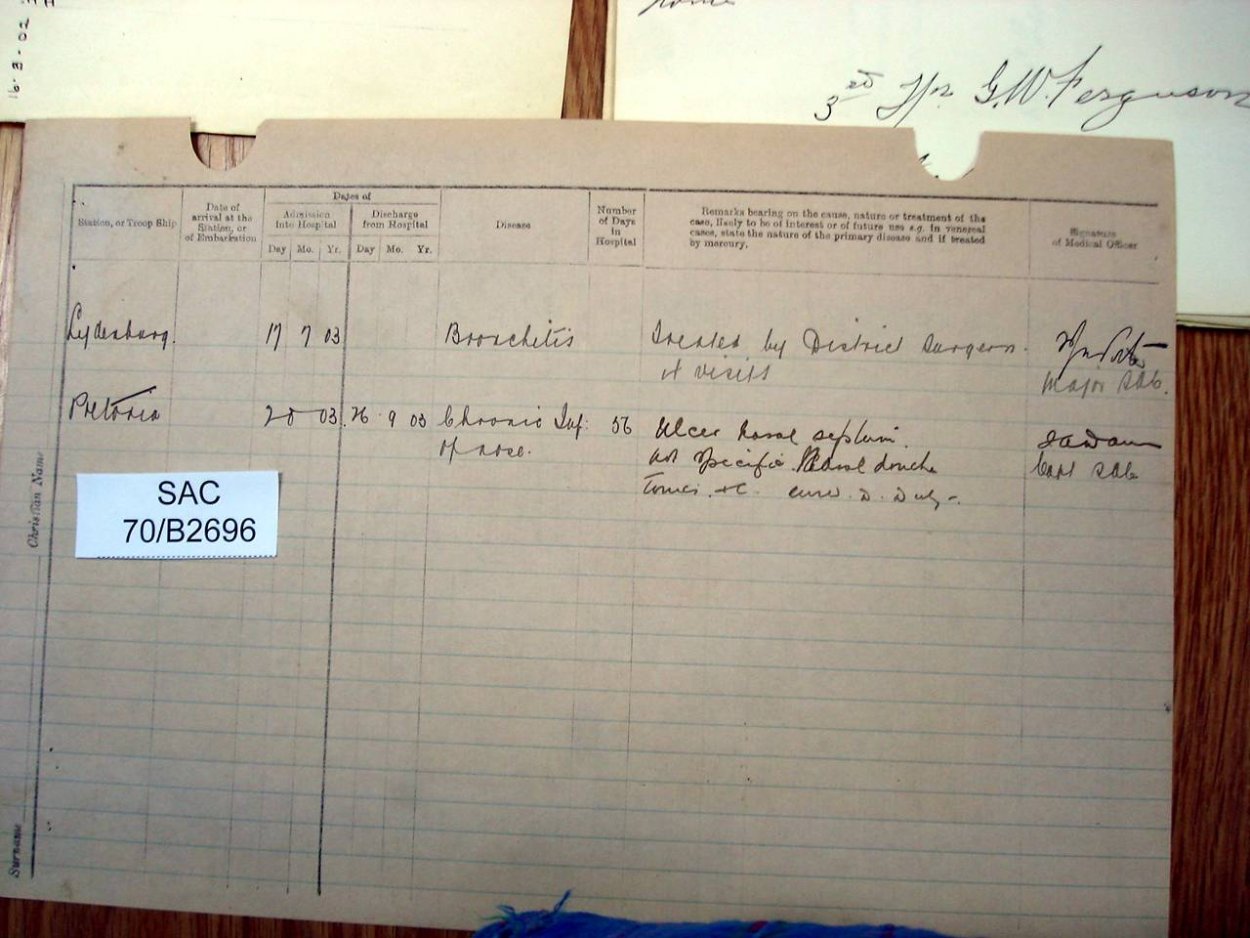 16.3.02
3rd Tpr G.W. Ferguson
Dates of
Station, or Troop Ship
Date of
arrival at the
Station, or
of Embarkation
Admission
into Hospital
Discharge
from Hospital
Day Mo. Yr. Day Mo. Yr.
Disease
Number
of Days
in
Hospital
Remarks bearing on the cause, nature or treatment of the
case, likely to be of interest or of future use e.g. in venereal
cases, state the nature of the primary disease and if treated
by mercury.
Signature
of Medical Officer
Lydenburg. 17 7 03 Bronchitis Treated by District Surgeon.
visits
Major SAC.
Pretoria 03. 26 9 03 Chronic Inf: 56 Ulcer nasal septum.
of nose. not specific. Nasal douche
Tonics &c. cured. D. Duty -.
Capt SAC
SAC
70/B2696
Christian Name
Surname